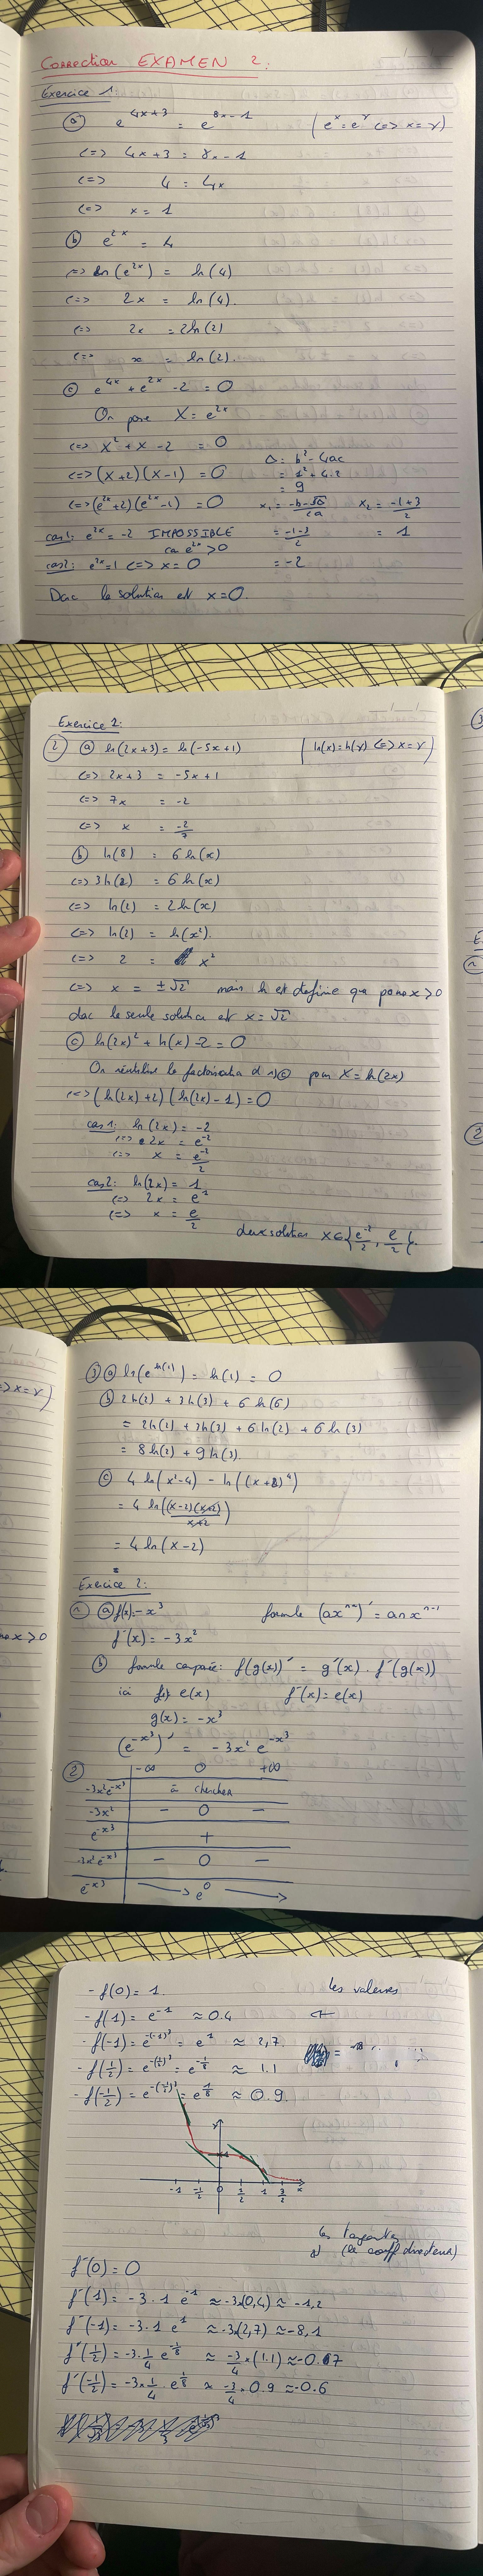 Correction EXAMEN 2:
Exercice 1:
(a) e^{4x+3} = e^{8x-1} (e^x = e^y <=> x=y)
<=> 4x+3 = 8x-1
<=> 4 = 4x
<=> x = 1
(b) e^{2x} = 4
<=> ln(e^{2x}) = ln(4)
<=> 2x = ln(4).
<=> 2x = 2ln(2)
<=> x = ln(2).
(c) e^{4x} + e^{2x} - 2 = 0
On pose X = e^{2x}
<=> X² + X - 2 = 0
Δ = b² - 4ac
<=> (X+2)(X-1) = 0
= 1² + 4.2
= 9
<=> (e^{2x}+2)(e^{2x}-1) = 0
x₁ = (-b-√Δ)/2a x₂ = (-1+3)/2
cas1: e^{2x} = -2 IMPOSSIBLE
= (-1-3)/2 = 1
car e^{2x} > 0
cas2: e^{2x} = 1 <=> x = 0
= -2
Donc la solution est x=0.
Exercice 2:
(2) (a) ln(2x+3) = ln(-5x+1) (ln(x)=ln(y) <=> x=y)
<=> 2x+3 = -5x+1
<=> 7x = -2
<=> x = -2/7
(b) ln(8) = 6 ln(x)
<=> 3ln(2) = 6 ln(x)
<=> ln(2) = 2ln(x)
<=> ln(2) = ln(x²).
<=> 2 = x²
<=> x = ±√2 mais ln est définie que pour x>0
donc la seule solution est x=√2
(c) ln(2x)² + ln(x) - 2 = 0
On réutilise la factorisation d 1)(c) pour X = ln(2x)
<=> (ln(2x)+2)(ln(2x)-1) = 0
cas1: ln(2x) = -2
<=> 2x = e^{-2}
<=> x = e^{-2}/2
cas2: ln(2x) = 1
<=> 2x = e^1
<=> x = e/2
deux solution x∈{e^{-2}/2, e/2}.
(3) (a) ln(e^{ln(1)}) = ln(1) = 0
(b) 2ln(2) + 3ln(3) + 6ln(6)
= 2ln(2) + 3ln(3) + 6ln(2) + 6ln(3)
= 8ln(2) + 9ln(3).
(c) 4 ln(x²-4) - ln((x+2)^4)
= 4 ln((x-2)(x+2)/x+2)
= 4 ln(x-2)
=
Exercice 2:
(1) (a) f(x)=-x³ formule (ax^n)' = anx^{n-1}
f'(x) = -3x²
(b) formule composée: f(g(x))' = g'(x) . f'(g(x))
ici f(x) = e(x) f'(x) = e(x)
g(x) = -x³
(e^{-x³})' = -3x² e^{-x³}
(2) -∞ 0 +∞
-3x²e^{-x³} à chercher
-3x² - 0 -
e^{-x³} +
-3x²e^{-x³} - 0 -
e^{-x³} e^0
- f(0) = 1. les valeurs
- f(1) = e^{-1} ≈ 0.4
- f(-1) = e^{-(-1)³} = e^1 ≈ 2,7.
- f(1/2) = e^{-(1/2)³} = e^{-1/8} ≈ 1.1
- f(-1/2) = e^{-(-1/2)³} = e^{1/8} ≈ 0.9.
y
1
-1 -1/2 0 1/2 1 3/2 x
les tangentes
(le coeff directeur)
f'(0) = 0
f'(1) = -3.1 e^{-1} ≈ -3×(0,4) ≈ -1,2
f'(-1) = -3.1 e^1 ≈ -3×(2,7) ≈ -8,1
f'(1/2) = -3.1/4 e^{-1/8} ≈ -3/4 × (1.1) ≈ -0.67
f'(-1/2) = -3×1/4 . e^{1/8} ≈ -3/4 × 0.9 ≈ -0.6